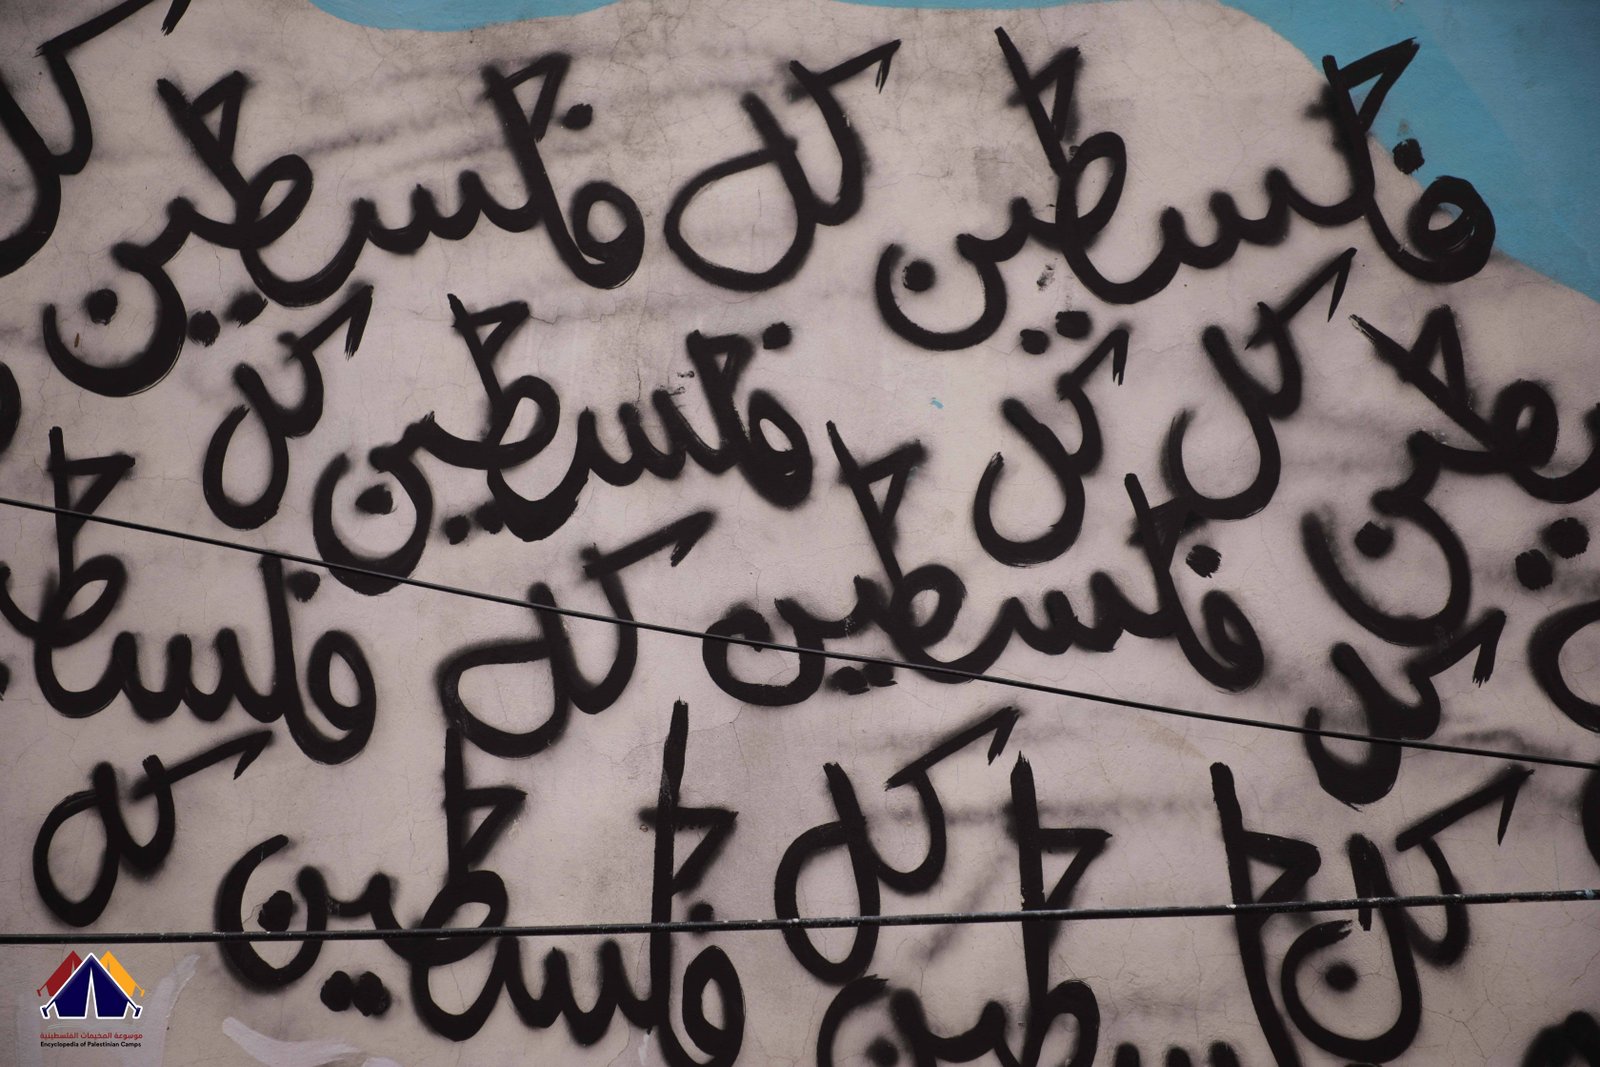 فلسطين كل فلسطين كل
كل كل فلسطين كل
كل فلسطين كل
كل
كل فلسطين كل
موسوعة المخيمات الفلسطينية
Encyclopedia of Palestinian Camps